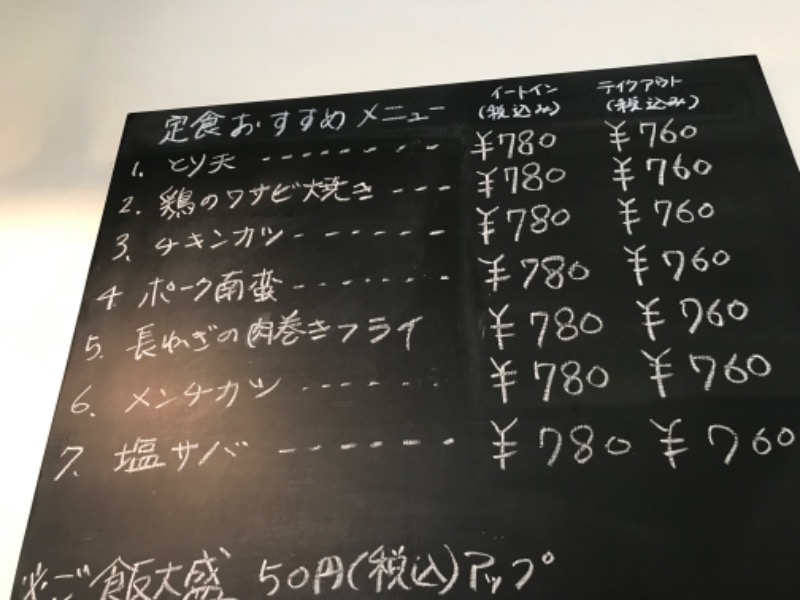 定食おすすめメニュー イートイン(税込み) テイクアウト(税込み)
1. とり天 --------- ¥780 ¥760
2. 鶏のワサビ焼き --- ¥780 ¥760
3. チキンカツ ------- ¥780 ¥760
4 ポーク南蛮 ------- ¥780 ¥760
5. 長ねぎの肉巻きフライ ¥780 ¥760
6. メンチカツ ------- ¥780 ¥760
7. 塩サバ ------ ¥780 ¥760
※ご飯大盛 50円(税込)アップ